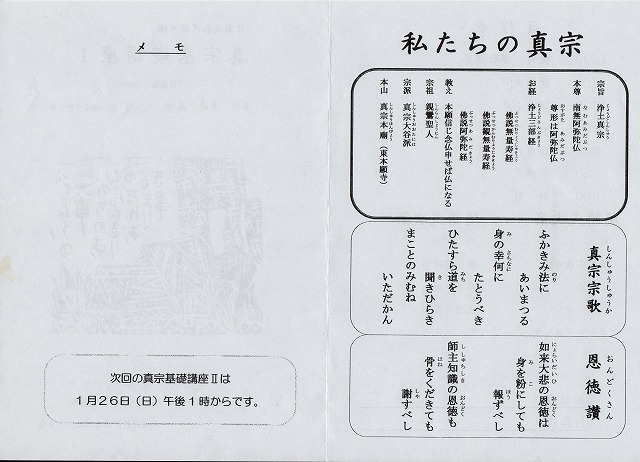 私たちの真宗
宗旨 浄土真宗
本尊 南無阿弥陀仏
尊形は阿弥陀仏
お経 浄土三部経
佛説無量寿経
佛説観無量寿経
佛説阿弥陀経
教え 本願信じ念仏申せば仏になる
宗祖 親鸞聖人
宗派 真宗大谷派
本山 真宗本廟（東本願寺）
真宗宗歌
ふかきみ法に
あいまつる
身の幸何に
たとうべき
ひたすら道を
聞きひらき
まことのみむね
いただかん
恩徳讃
如来大悲の恩徳は
身を粉にしても
報ずべし
師主知識の恩徳も
骨をくだきても
謝すべし
メモ
次回の真宗基礎講座Ⅱは
１月２６日（日）午後１時からです。